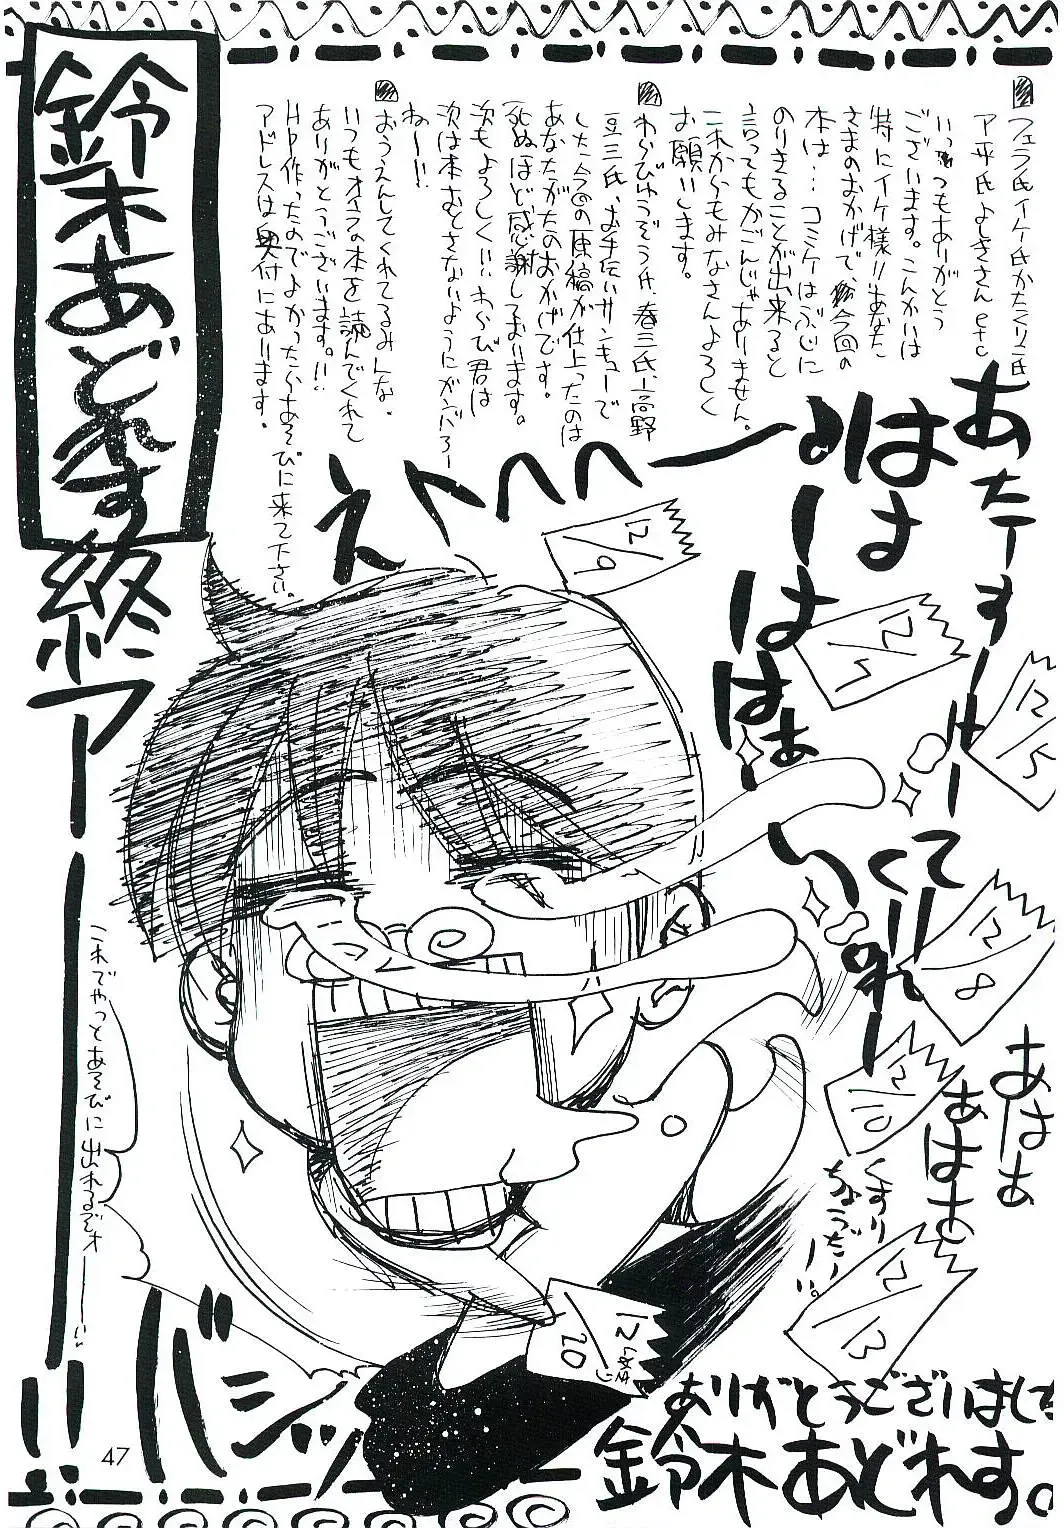 フェラ氏イケ氏かたくり氏
ア平氏よしきさんetc
いつもありがとう
ございます。こんかいは
特にイケ様!!あなた
さまのおかげで今回の
本は…コミケはぶじに
のりきることが出来ると
言ってもかごんじゃありません。
これからもみなさんよろしく
お願いします。
わらびゅうぞう氏、春三氏、高野
豆三氏、お手伝いサンキューで
した今回の原稿が仕上ったのは
あなたがたのおかげです。
死ぬほど感謝しております。
次もよろしくい、わらび君は
次は本おとさないようにがんばろー
ねー!!
おうえんしてくれてるみんな、
いつもオイラの本を読んでくれて
ありがとうございます。!!
HP作ったのでよかったらあそびに来て下さい。
アドレスは奥付にあります。
鈴木あどれす
終アーーー!!
あたーすーけー
てーくれー
はは
ーはーはは
はぁ
いーのれー
えへへへー
12/9
12/5
12/8
12/10
12/13
12/20
しめきり
あはぁ
あはぁ
くすり
ちょうだーい。
これでやっとあそびに出れるぞォーーー!!
バシッ
ありがとうございました
鈴木あどれす。
47